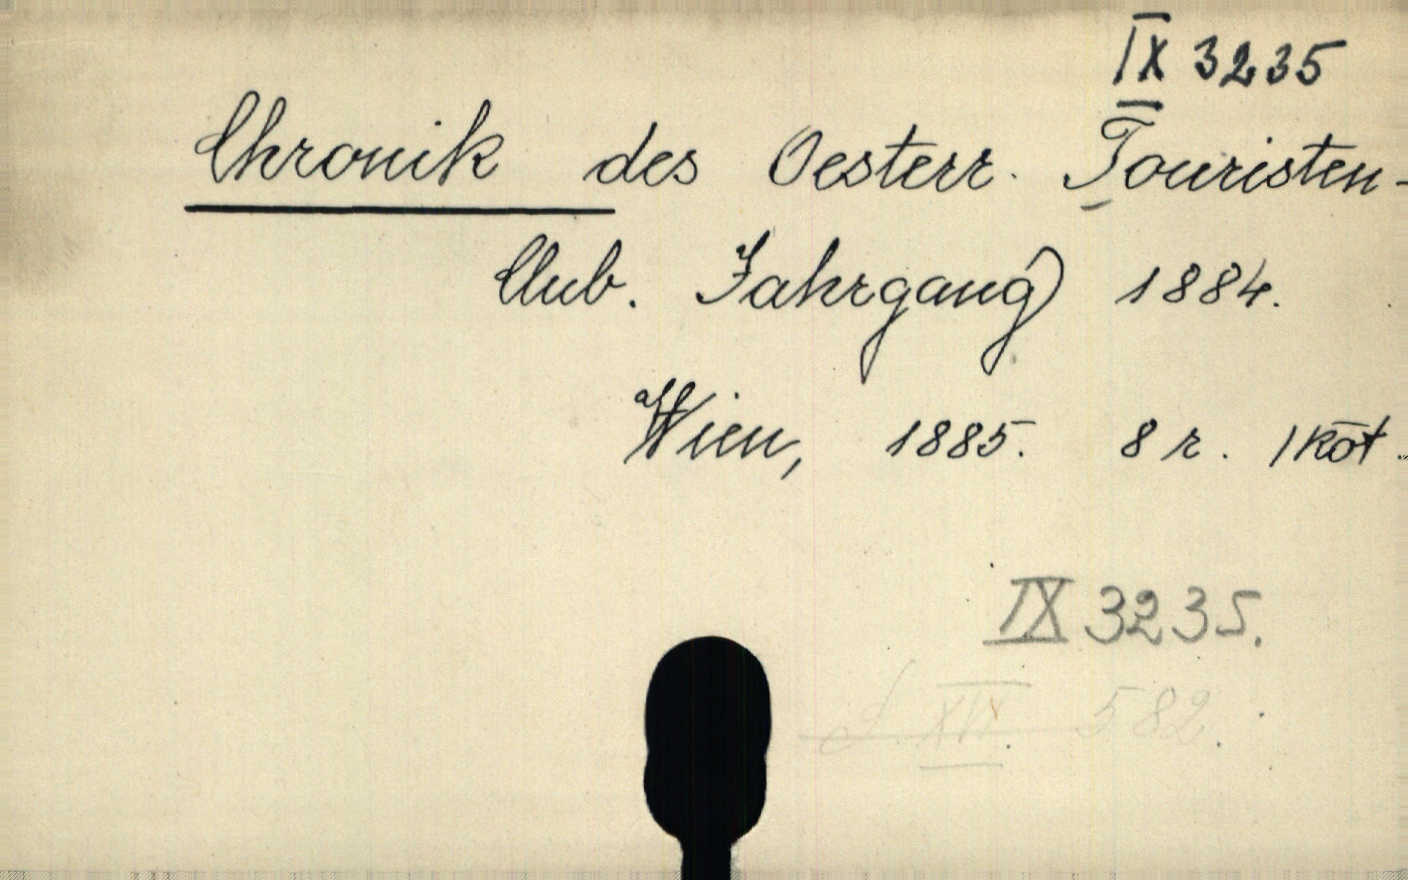 IX 3235
Chronik des Oesterr. Touristen-
Club. Jahrgang 1884.
Wien, 1885. 8 r. 1 köt.
IX 3235.
582.